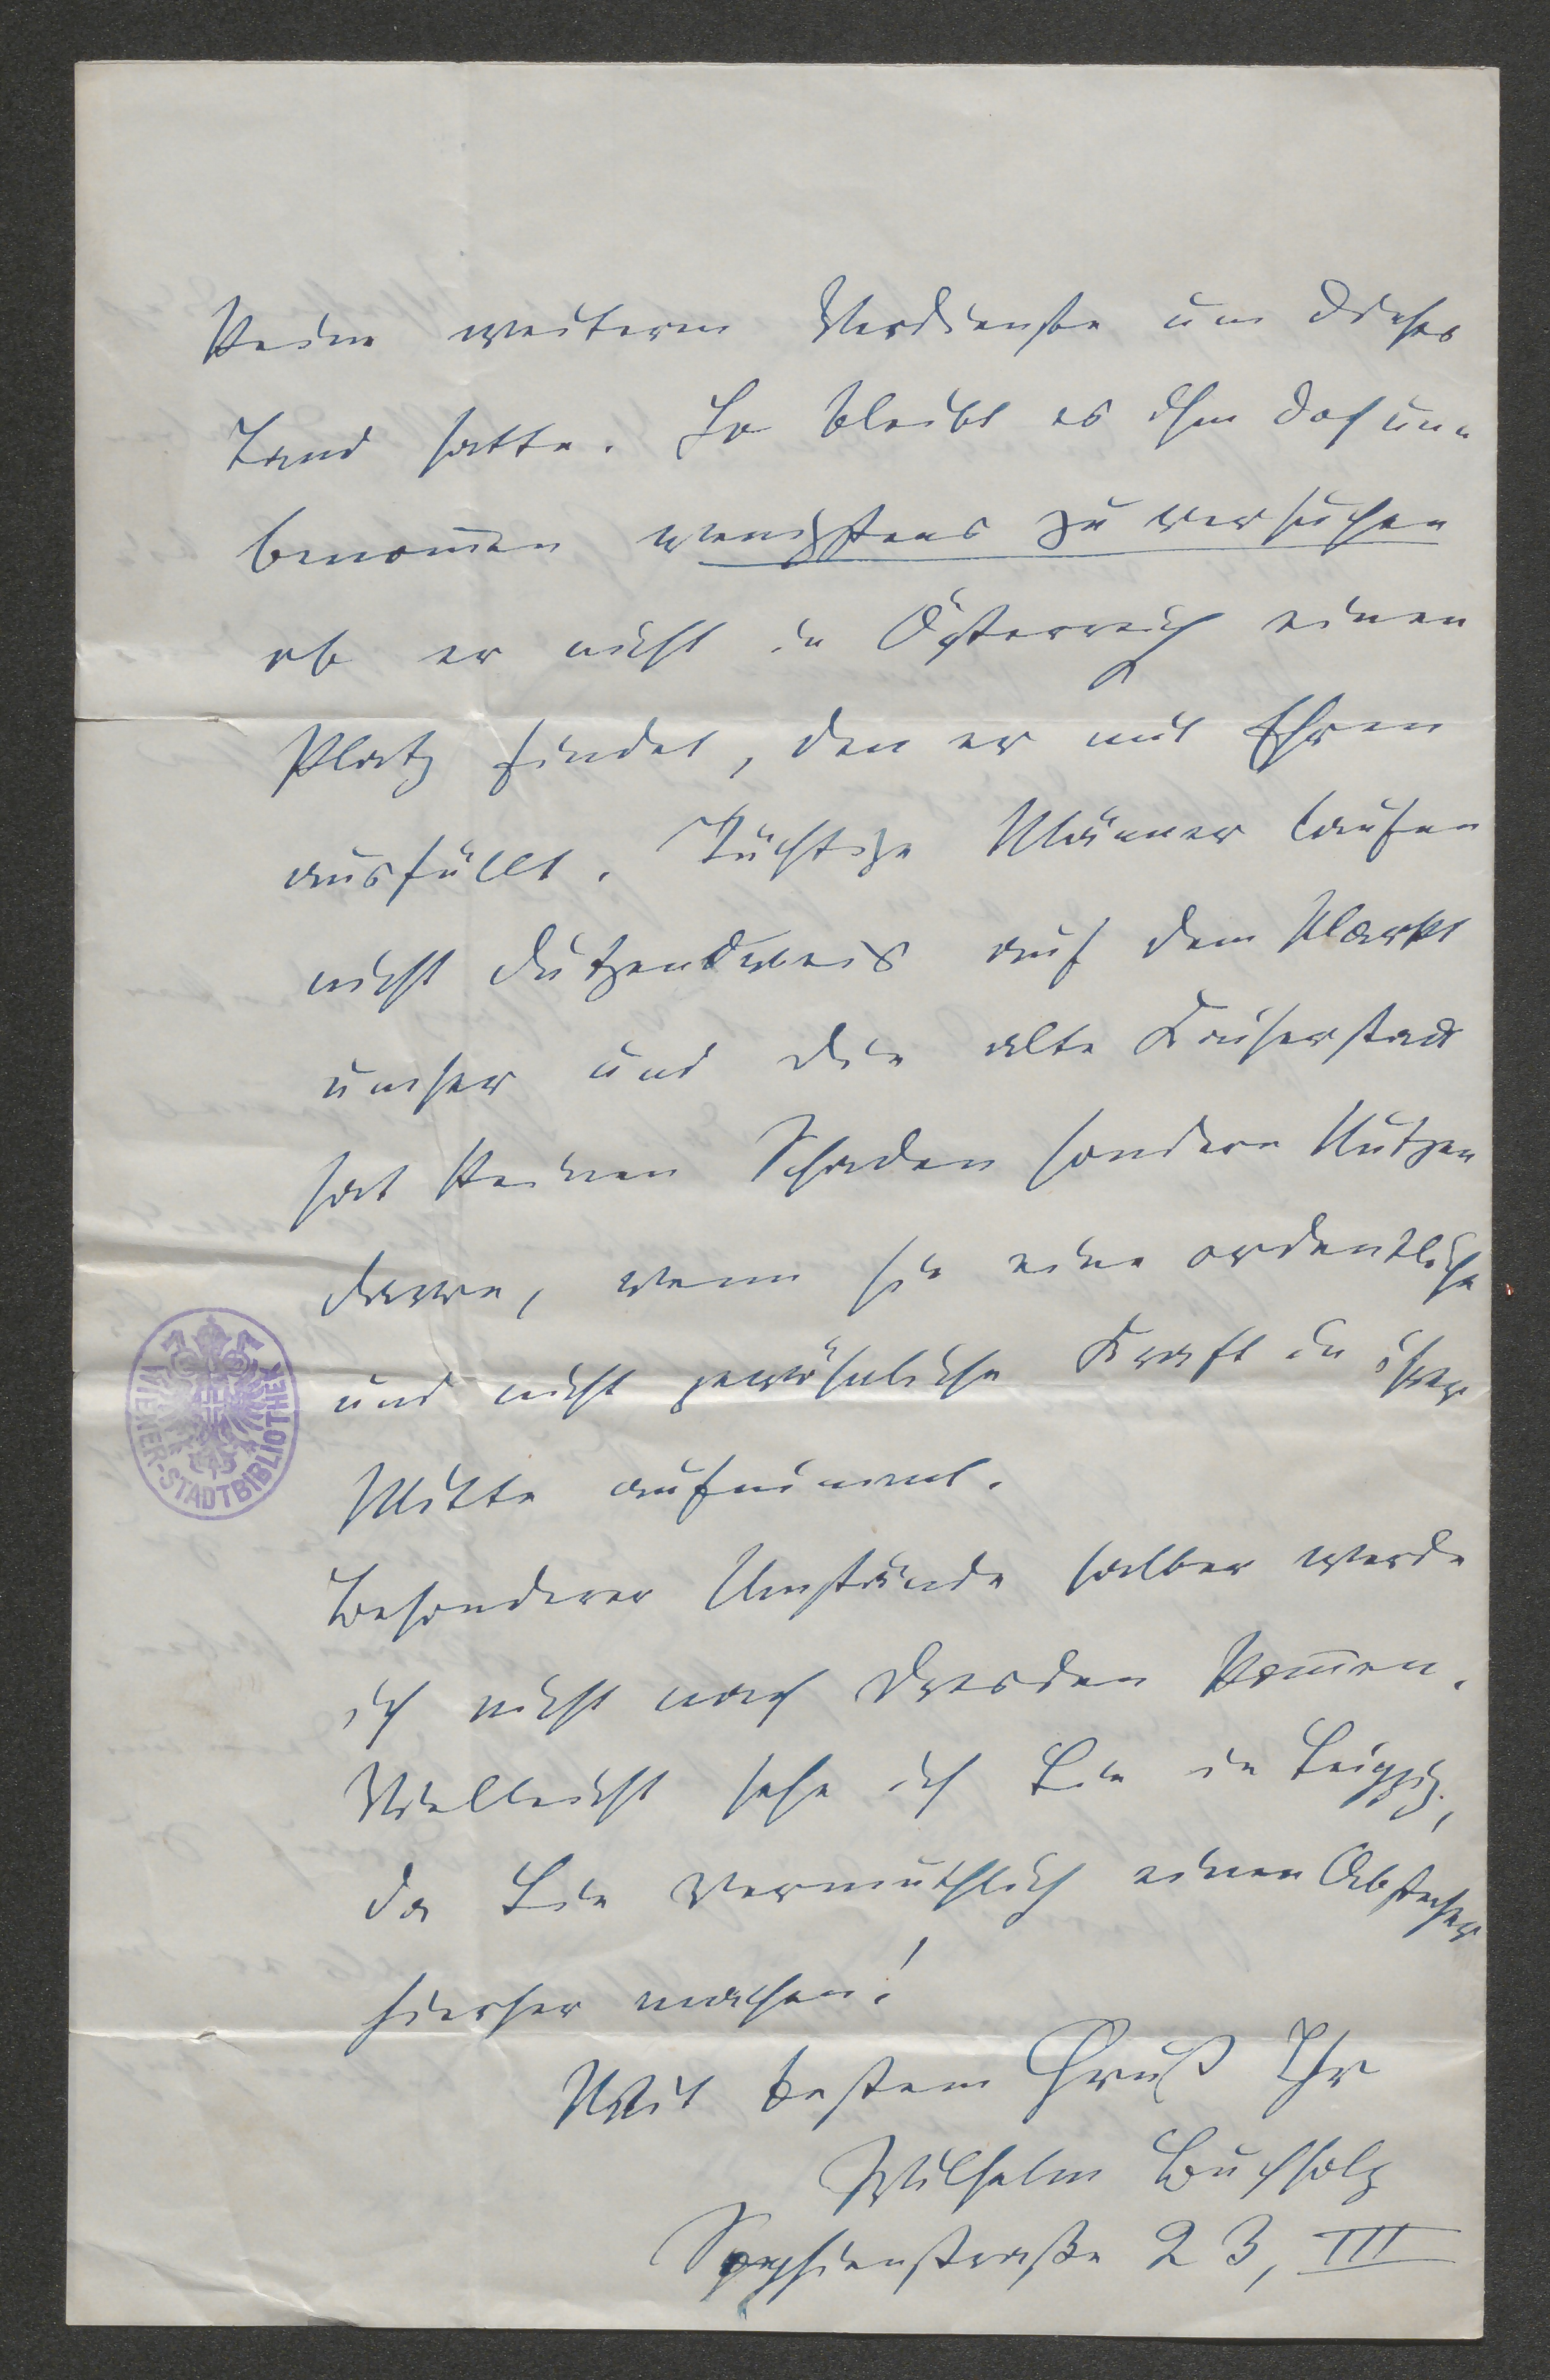 keine weiteren Verdienste um dieses
Land hatte. So bleibt es ihm doch un„
benom̄en wenigstens zu versuchen
ob er nicht in Österreich einen
Platz findet, den er mit Ehren
ausfüllt. Tüchtige Männer laufen
nicht dutzendweis auf dem Markt
umher und die alte Kaiserstadt
hat keinen Schaden sondern Nutzen
davon, wenn sie eine ordentliche
und nicht gewöhnliche Kraft in ihrer
Mitte aufnimmt.
Besonderer Umstände halber werde
ich nicht nach Dresden kom̄en.
Vielleicht sehe ich Sie in Leipzig,
da Sie vermuthlich einen Abstecher
hierher machen!
Mit bestem Gruß Ihr
Wilhelm Buchholz
Sophienstraße 23, III
WIENER-STADTBIBLIOTHEK